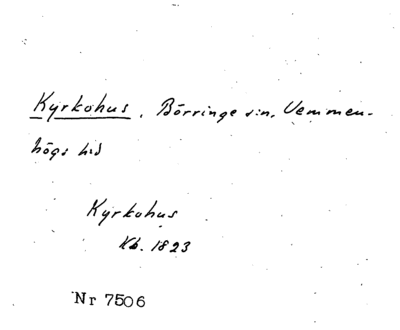 Kyrkohus, Börringe sn, Vemmen-
högs hd
Kyrkohus
Kb. 1823
Nr 7506